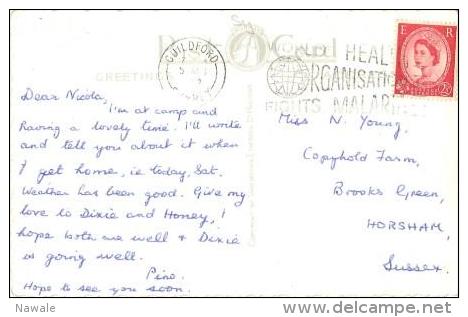 Post Card
GREETIN
GUILDFORD
HEAL
ORGANISATIO
FIGHTS MALAR
E R
2½D
Dear Nicola,
I'm at camp and
having a lovely time. I'll write
and tell you about it when
I get home, ie today, Sat.
Weather has been good. Give my
love to Dixie and Honey, I
hope both are well & Dixie
is going well.
Hope to see you soon.
Miss N. Young,
Copyhold Farm,
Brooks Green,
HORSHAM,
Sussex.
Nawale
http://www.delcampe.net